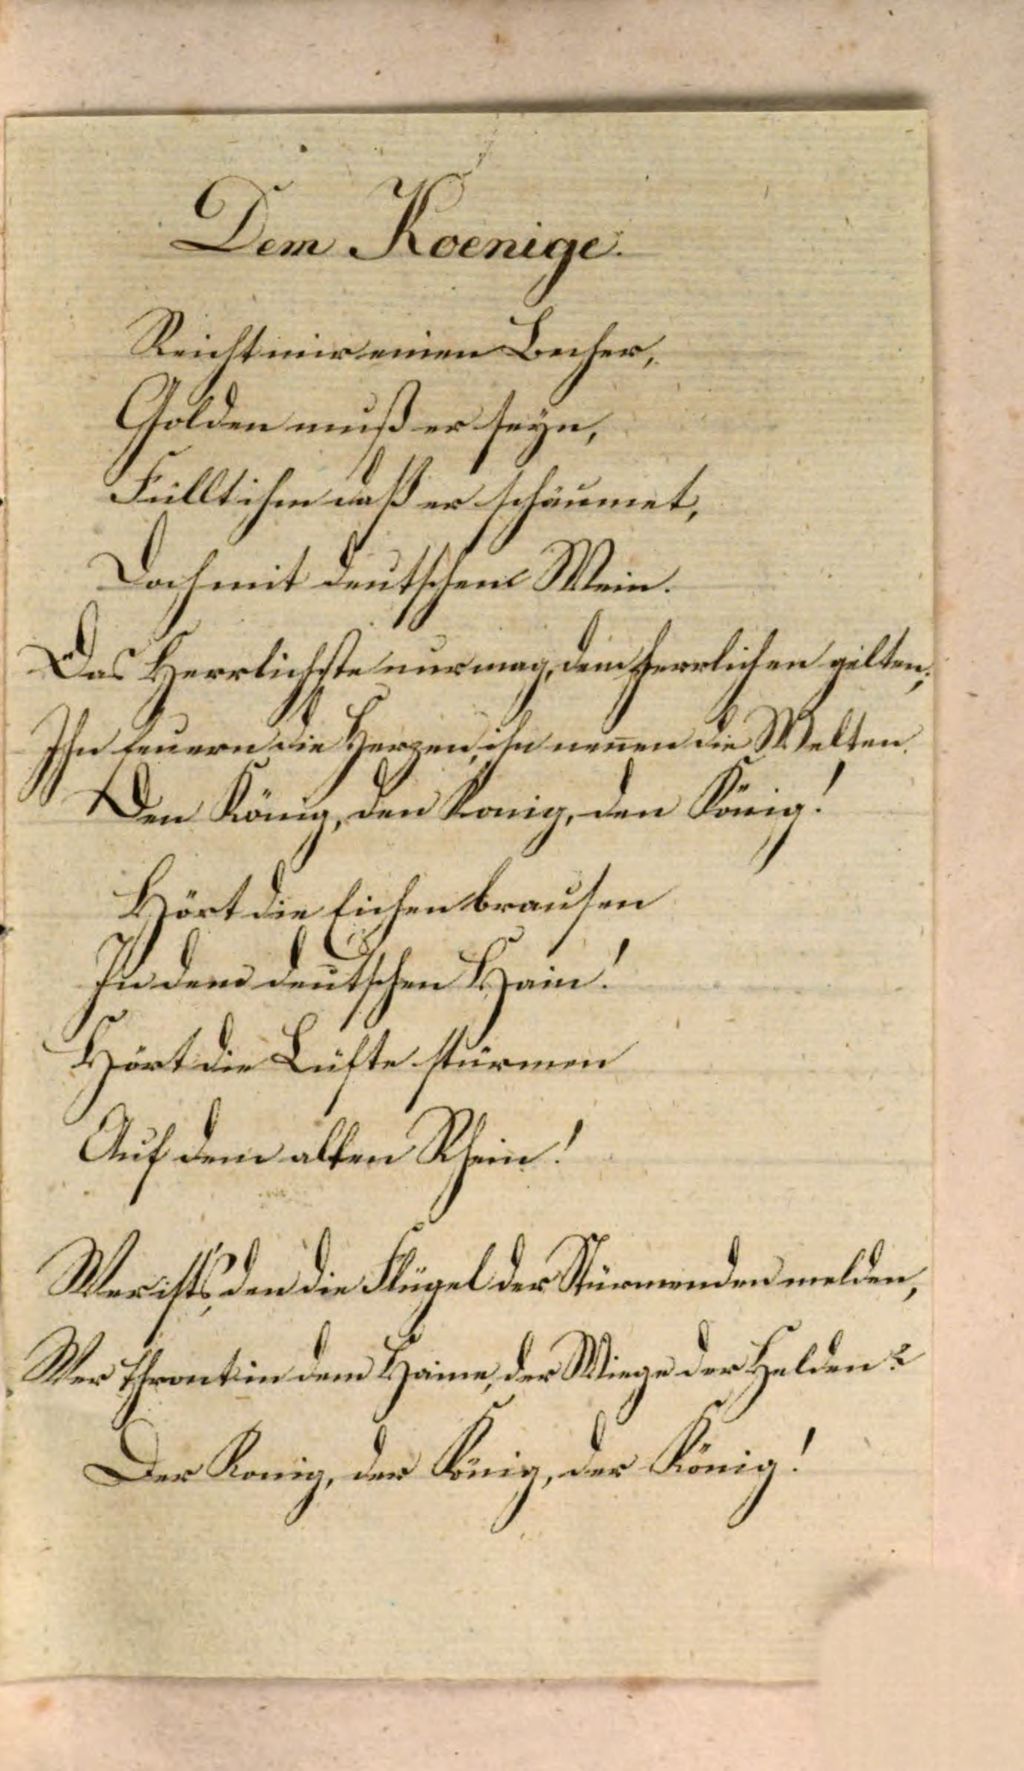 Dem Koenige.
Reicht mir einen Becher,
Golden muß er seyn,
Füllt ihm daß er schäumet,
Doch mit deutschem Wein.
Das Herrlichste nur mag, dem Herrlichen gelten;
Ihn feuern die Herzen, ihn nennen die Welten.
Den König, den Konig, den König!
Hört die Eichen brausen
In dem deutschen Hain!
Hört die Lüfte stürmen
Auf dem alten Rhein!
Wer ists, den die Flügel der Stürmenden melden,
Wer thront in dem Haine, der Wiege der Helden?
Der Konig, der König, der König!